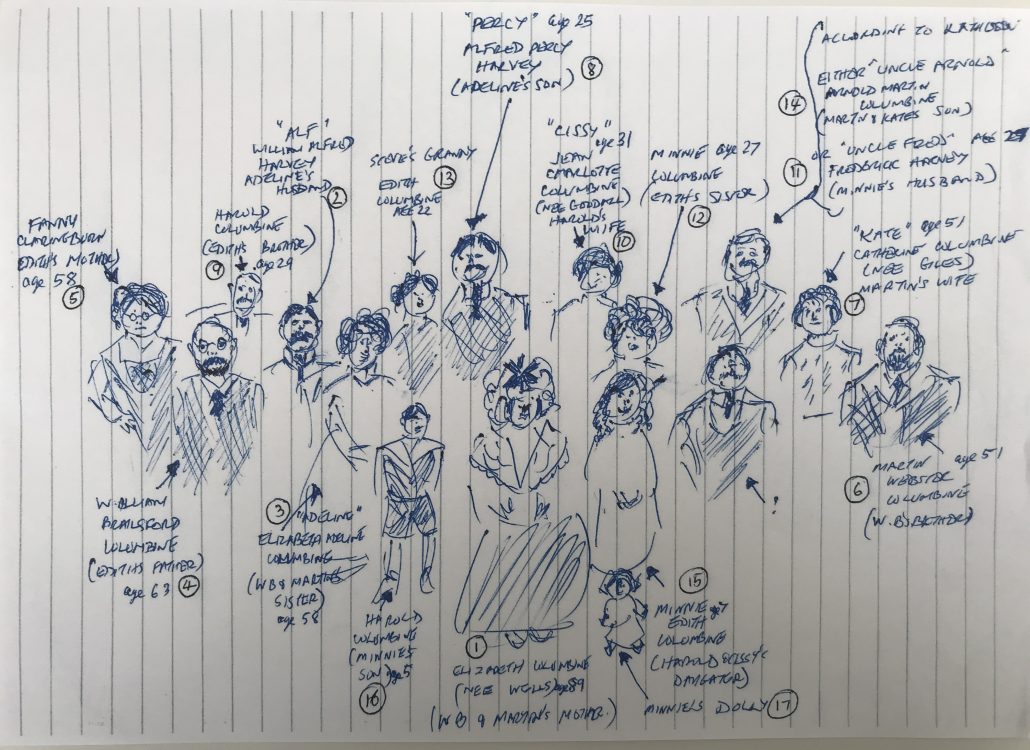 "PERCY" age 25
ALFRED PERCY
HARVEY
(ADELINE'S SON)
8
ACCORDING TO KATHLEEN
EITHER "UNCLE ARNOLD"
ARNOLD MARTIN
COLUMBINE
(MARTIN & KATES SON)
14
OR "UNCLE FRED" AGE
FREDERICK HARVEY
(MINNIE'S HUSBAND)
11
"ALF"
WILLIAM ALFRED
HARVEY
ADELINE'S
HUSBAND
2
STEVE'S GRANNY
13
EDITH
COLUMBINE
AGE 22
"CISSY"
age 31
JEAN
CHARLOTTE
COLUMBINE
(NEE GODDARD)
HAROLD'S
WIFE
10
MINNIE age 27
COLUMBINE
(EDITH'S SISTER)
12
"KATE" age 51
CATHERINE COLUMBINE
(NEE GILES)
MARTIN'S WIFE
7
FANNY
CLARINGBURN
EDITH'S MOTHER)
age 58
5
HAROLD
COLUMBINE
(EDITH'S BROTHER)
age 29
9
WILLIAM
BRAILSFORD
COLUMBINE
(EDITH'S FATHER)
age 63
4
3
"ADELINE"
ELIZABETH ADELINE
COLUMBINE
(WB & MARTIN'S
SISTER)
age 58
HAROLD
COLUMBINE
(MINNIE'S
SON) age 5
16
1
ELIZABETH COLUMBINE
(NEE WELLS) age 89
(WB & MARTIN'S MOTHER.)
15
MINNIE age 7
EDITH
COLUMBINE
(HAROLD & CISSY'S
DAUGHTER)
MINNIE'S DOLLY 17
?
MARTIN age 51
WEBSTER
COLUMBINE
(W.B'S BROTHER)
6